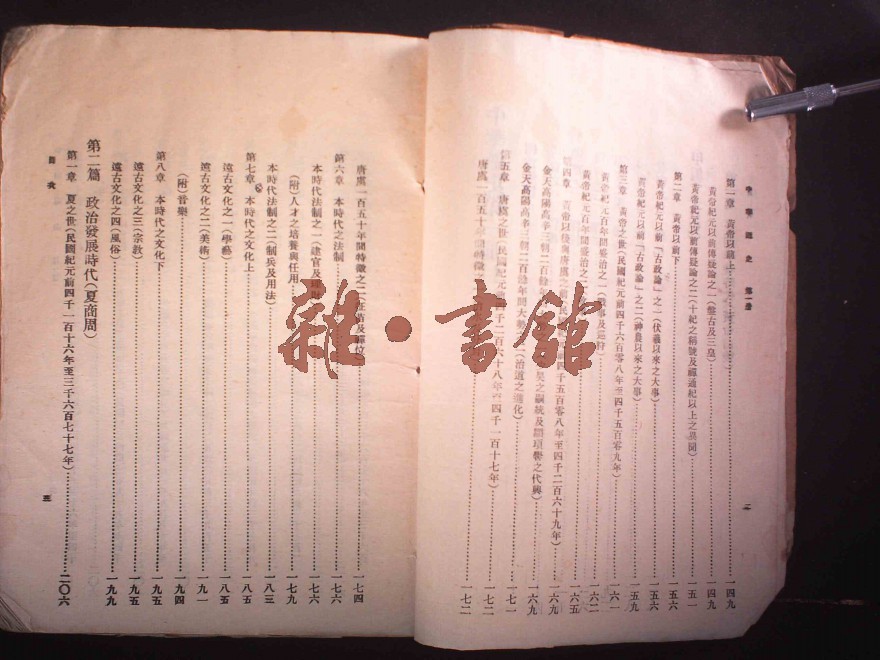 中華通史 第一册
二
第一章 黃帝以前上……一四九
黃帝紀元以前傳疑論之一(盤古及三皇)……一四九
黃帝紀元以前傳疑論之二(十紀之稱號及禪通紀以上之異聞)……一五一
第二章 黃帝以前下……一五六
黃帝紀元以前「古政論」之一(伏羲以來之大事)……一五六
黃帝紀元以前「古政論」之二(神農以來之大事)……一五九
第三章 黃帝之世(民國紀元前四千六百零八年至四千五百零九年)……一六一
黃帝紀元百年間盛治之一……一六二
黃帝紀元百年間盛治之二……一六五
第四章 黃帝以後與唐虞之前(民國紀元前四千五百零八年至四千二百六十九年)……一六九
金天高陽高辛三朝二百餘年……嗣統及顓頊嚳之代興)……一六九
金天高陽高辛三朝二百餘年間大勢……(治道之進化)……一七一
第五章 唐虞之世(民國紀元前四千二百六十八年至四千一百十七年)……一七二
唐虞一百五十年間特徵之一……一七二
唐虞一百五十年間特徵之二……一七四
第六章 本時代之法制……一七六
本時代法制之一(建官及理財)……一七六
(附)人才之培養與任用……一七九
本時代法制之二(制兵及用法)……一八三
第七章 本時代之文化上……一八五
遠古文化之一(學藝)……一八五
遠古文化之二(美術)……一九一
(附)音樂……一九四
第八章 本時代之文化下……一九五
遠古文化之三(宗教)……一九五
遠古文化之四(風俗)……一九九
第二篇 政治發展時代(夏商周)
第一章 夏之世(民國紀元前四千一百十六年至三千六百七十七年)……二〇六
目次
三
雜·書館